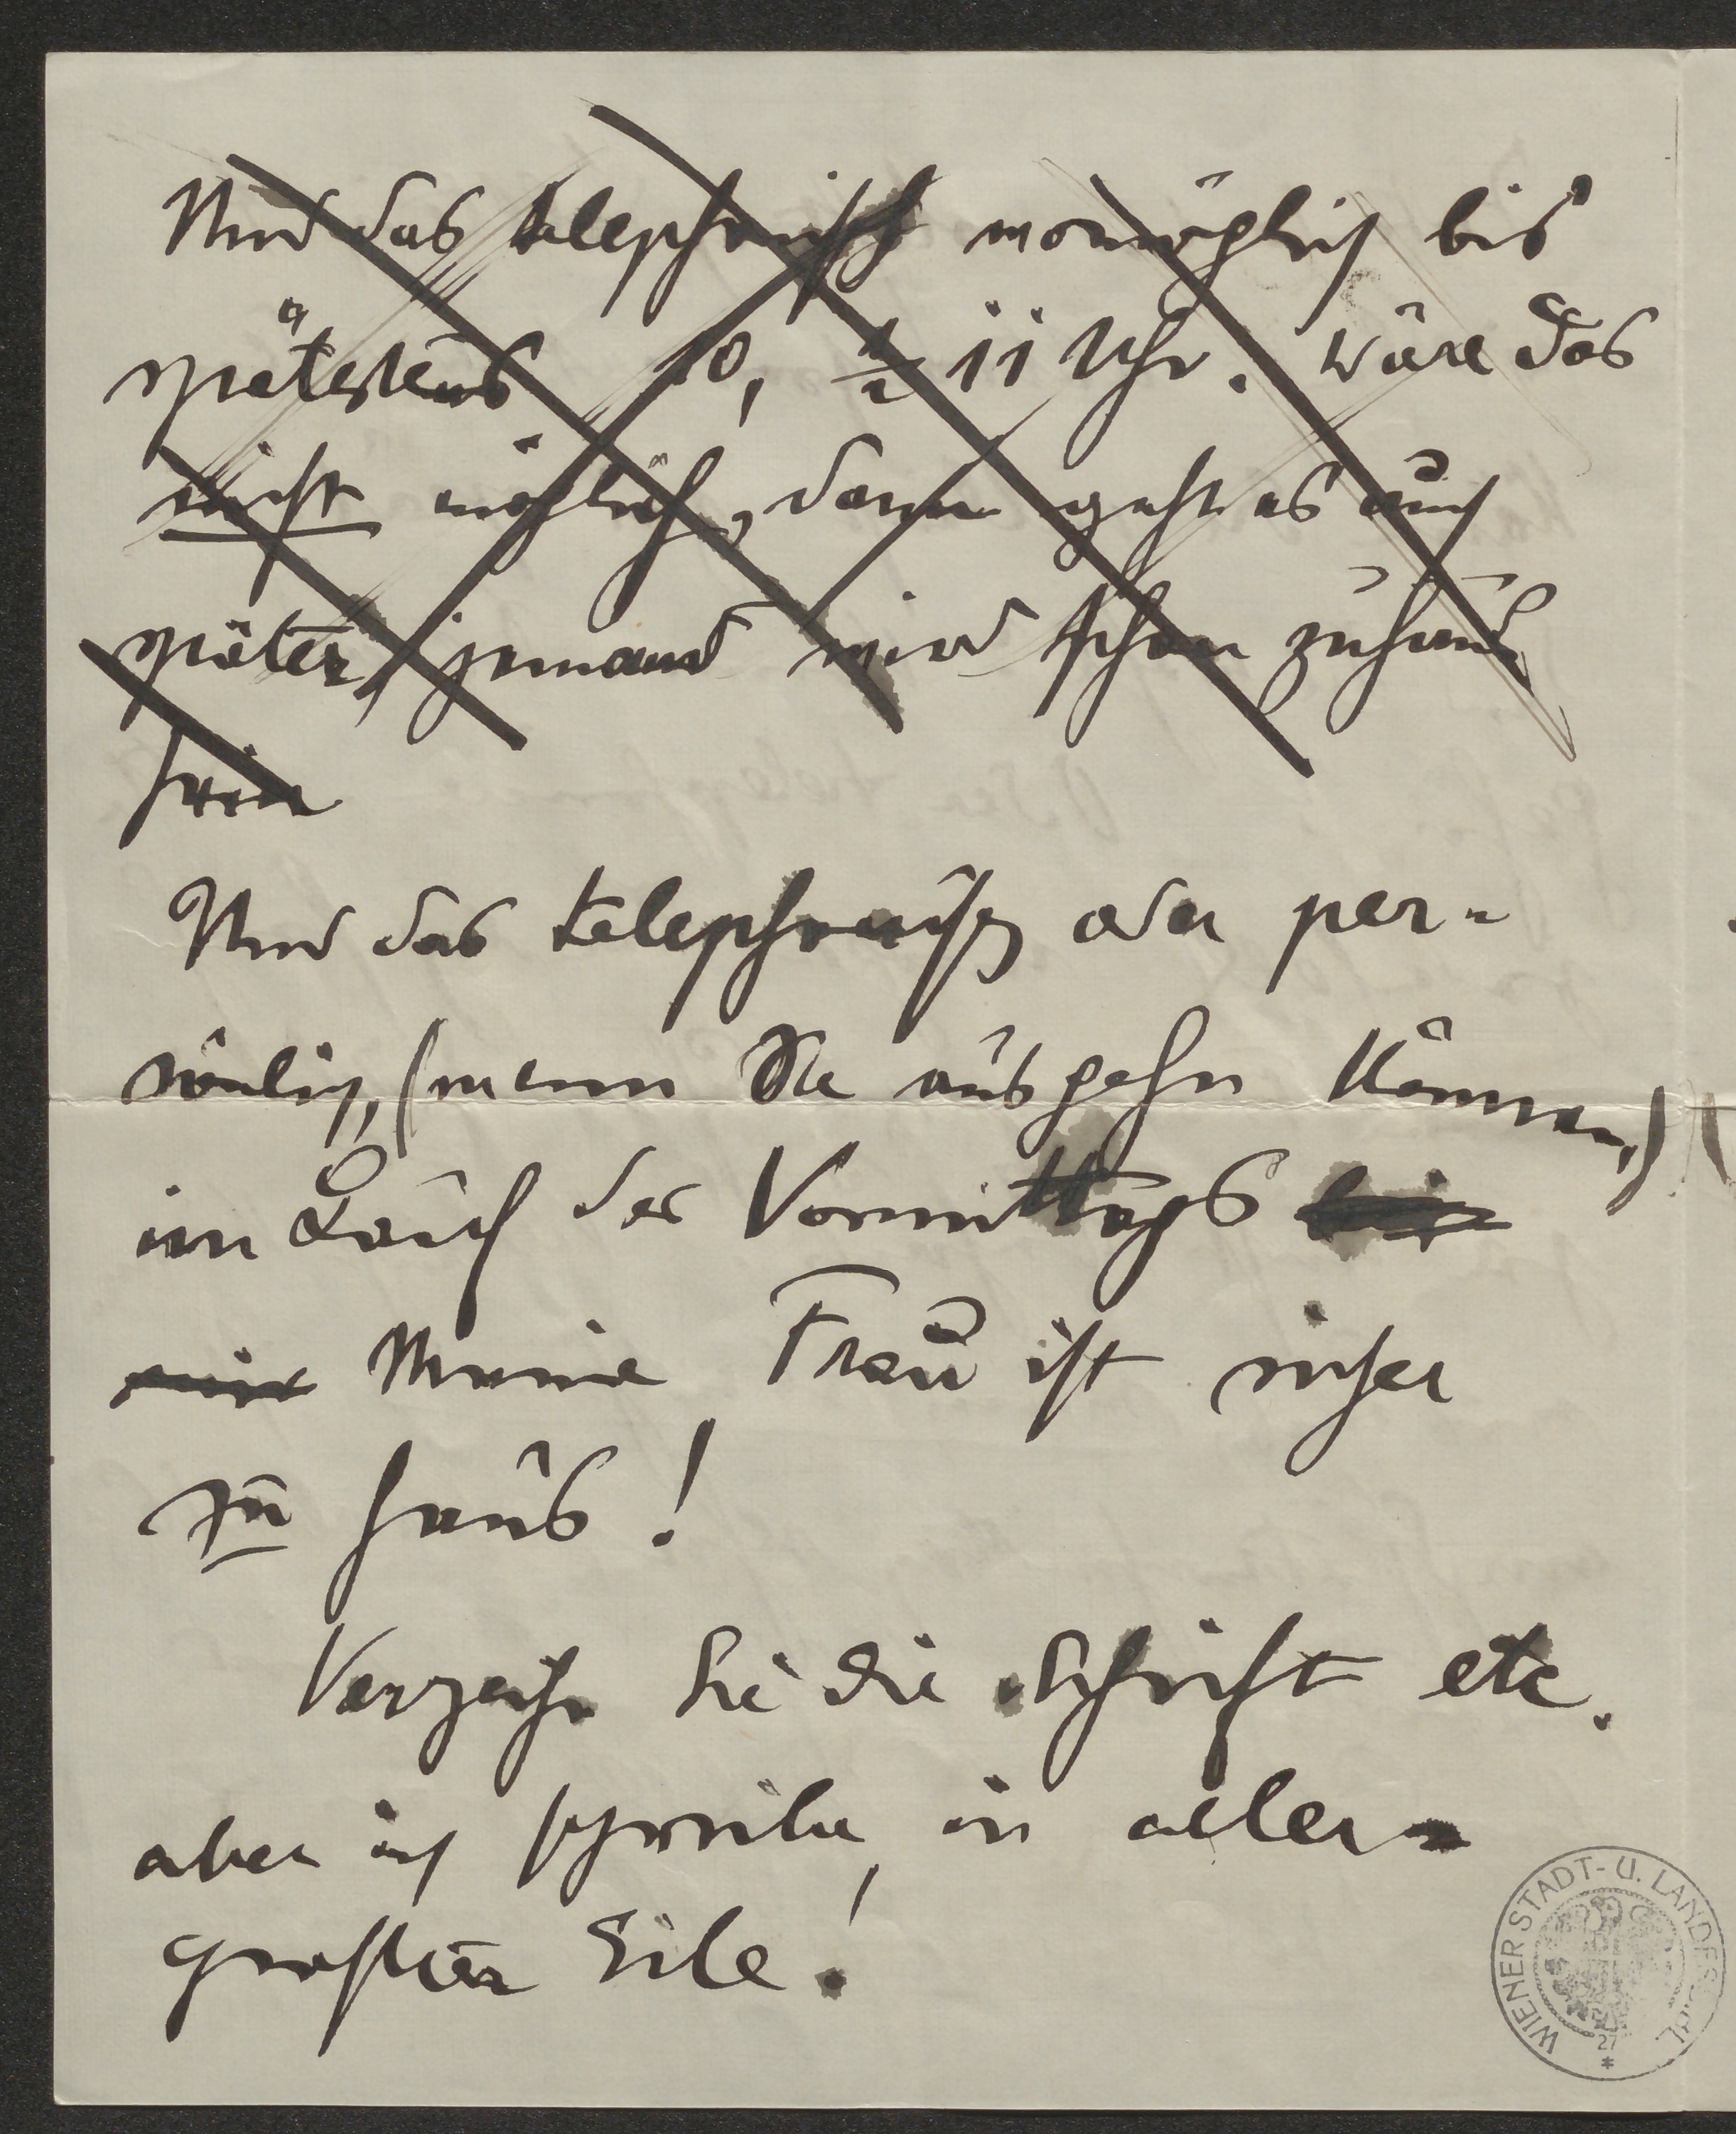 Und das telephonisch womöglich bis
spätestens 10, ½ 11 Uhr. Wäre das
nicht möglich, dann geht es auch
später, jemand wird schon zuhaus
sein
Und das telephonisch oder per-
sönlich, (wenn Sie ausgehn können,)
im Lauf des Vormittags bis
mir Meine Frau ist sicher
zu haus!
Verzeihn Sie die Schrift etc.
aber ich schreibe, in aller-
grösster Eile!
WIENER STADT- U. LANDESBIBL.
27